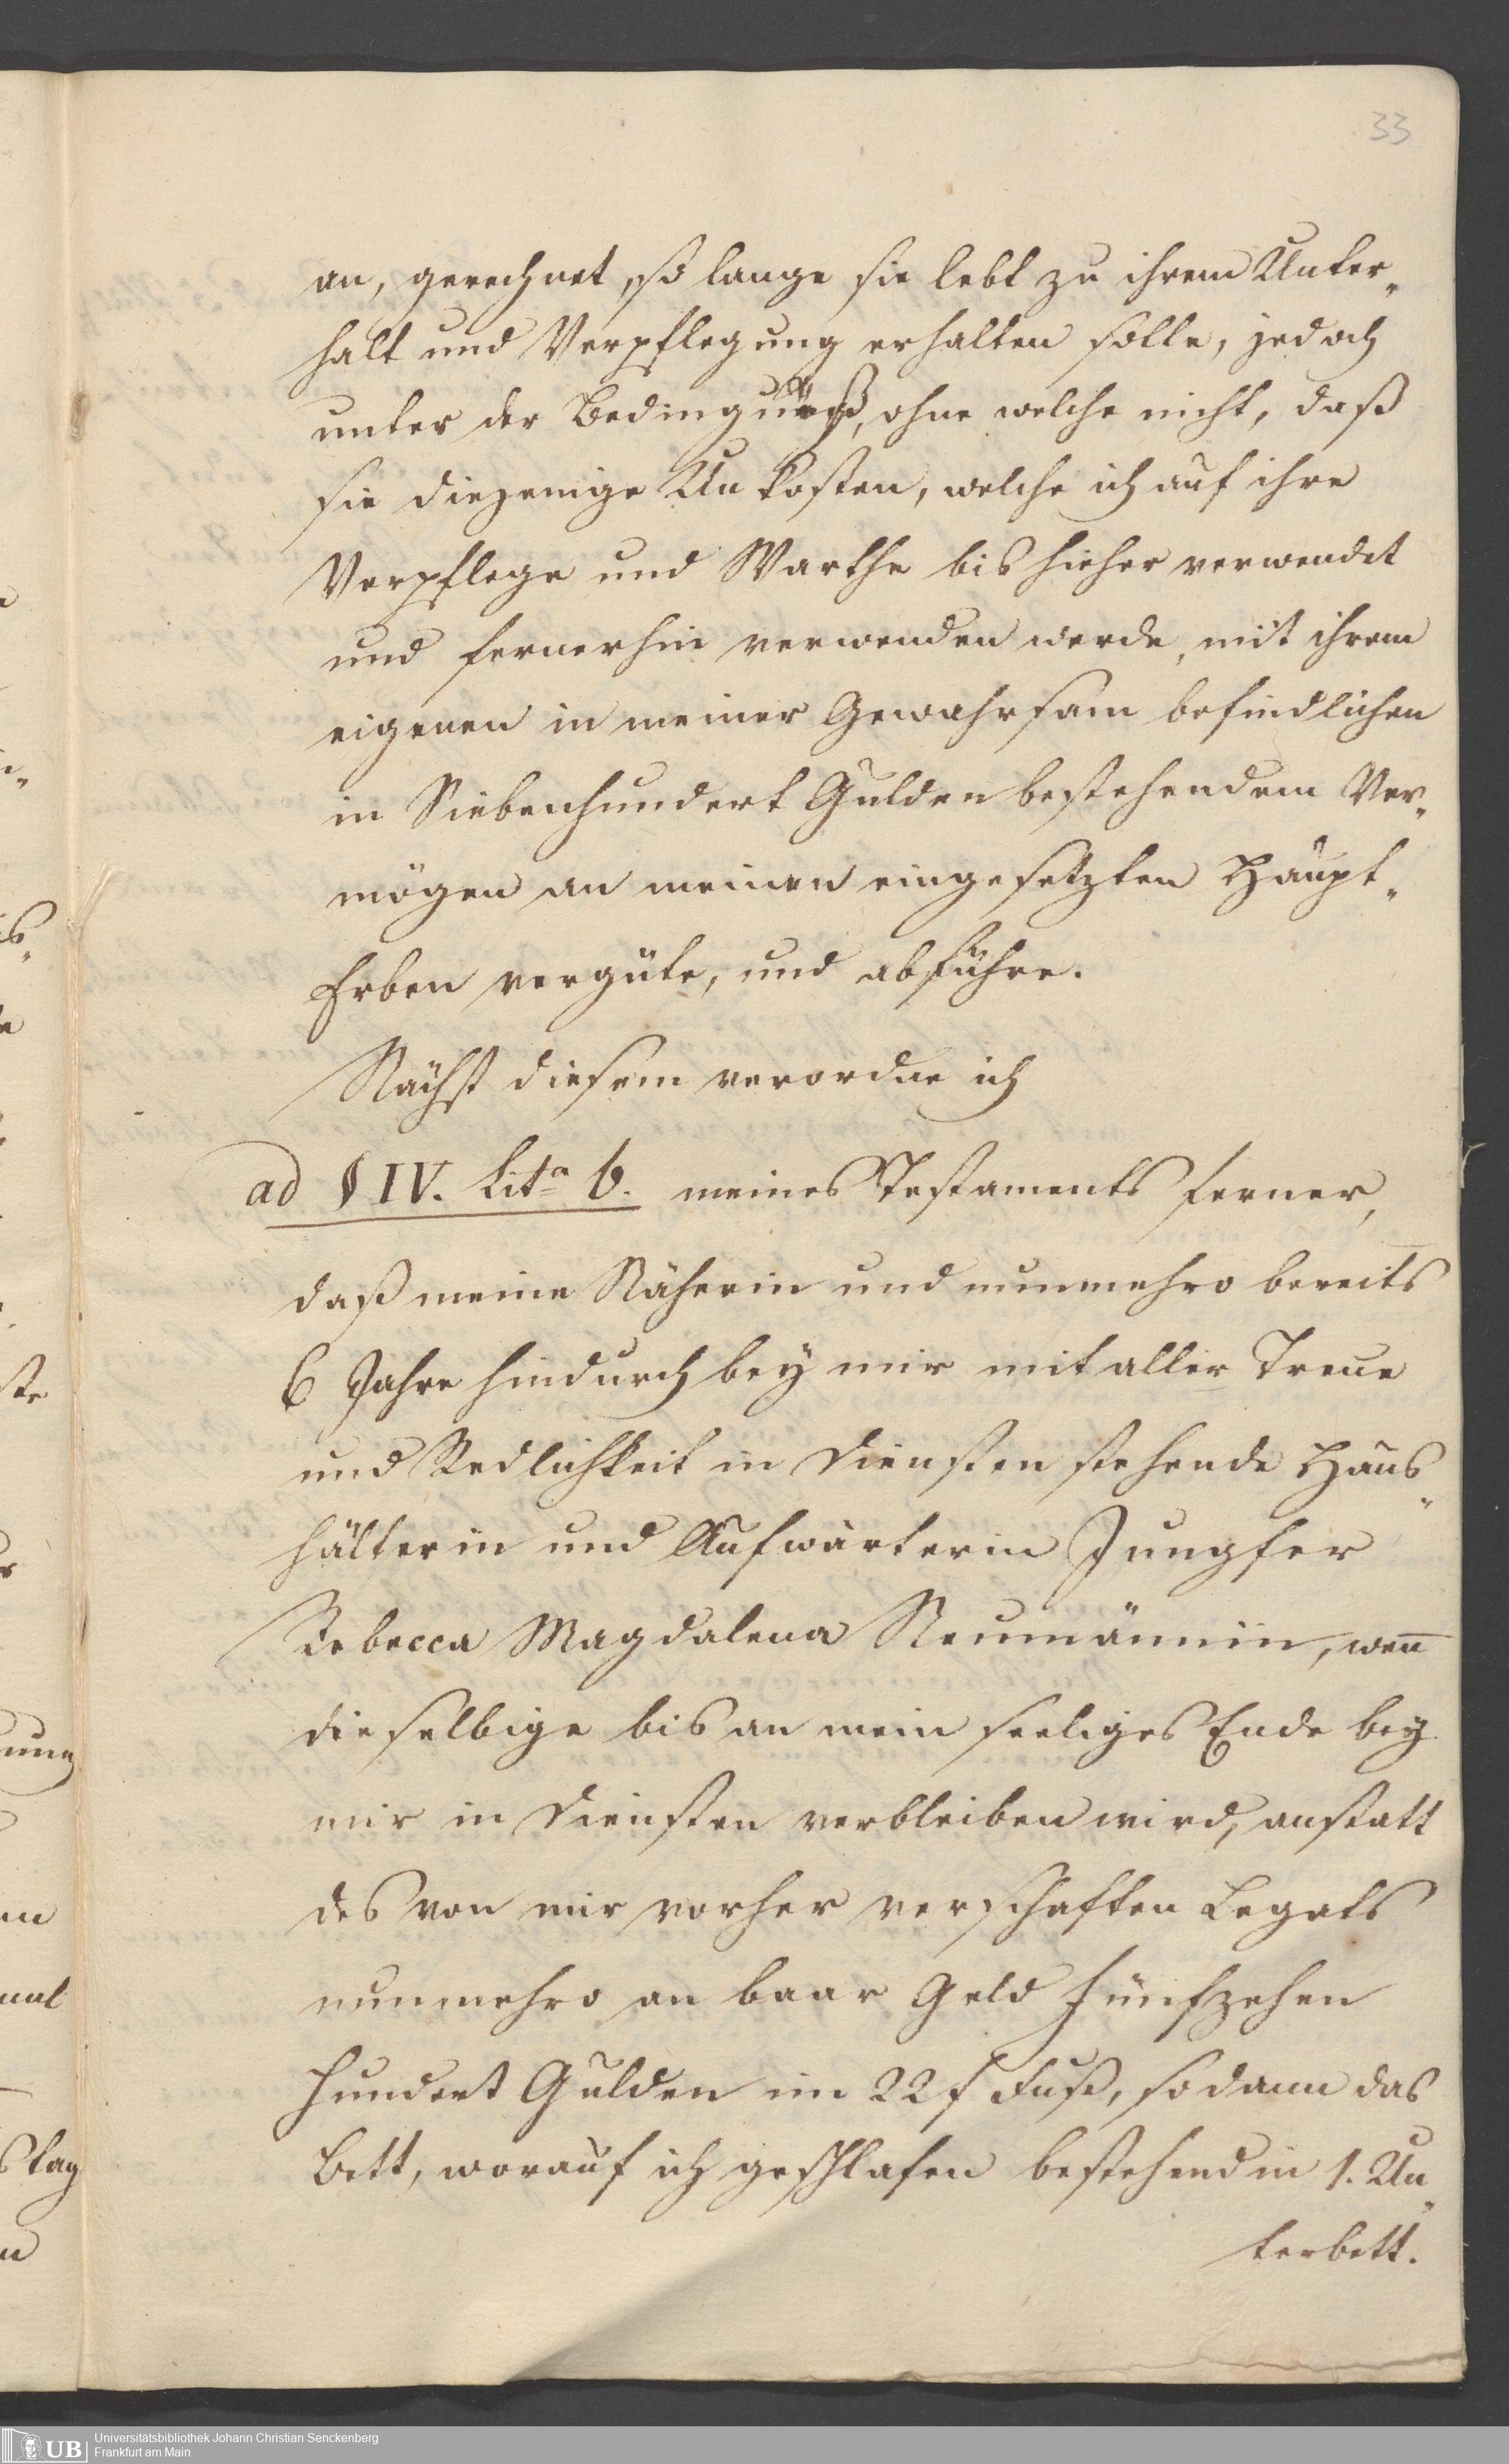 33
an, gerechnet, so lange sie lebt zu ihrem Unter„
halt und Verpflegung erhalten solle, jedoch
unter der Bedingnuß, ohne welche nicht, daß
sie diejenige Unkosten, welche ich auf ihre
Verpflege und Warthe bishieher verwendet
und fernerhin verwenden werde, mit ihrem
eigenen in meiner Gewahrsam befindlichen
in Siebenhundert Gulden bestehendem Ver„
mögen an meinen eingesetzten Haupt„
Erben vergüte, und abführe.
Nächst diesem verordne ich
ad § IV. Lit.a b. meines Testaments ferner,
daß meine Näherin und nunmehro bereits
6 Jahre hindurch bey mir mit aller Treue
und Redlichkeit in Diensten stehende Haus„
hälterin und Aufwärterin Jungfer
Rebecca Magdalena Neumännin, wen̄
dieselbige bis an mein seeliges Ende bey
mir in Diensten verbleiben wird, anstatt
des von mir vorher verschaften Legats
nunmehro an baar Geld Fünfzehen
hundert Gulden im 22 f Fuß, sodann das
Bett, worauf ich geschlafen bestehend in 1. Un„
terbett.
UB
Universitätsbibliothek Johann Christian Senckenberg
Frankfurt am Main